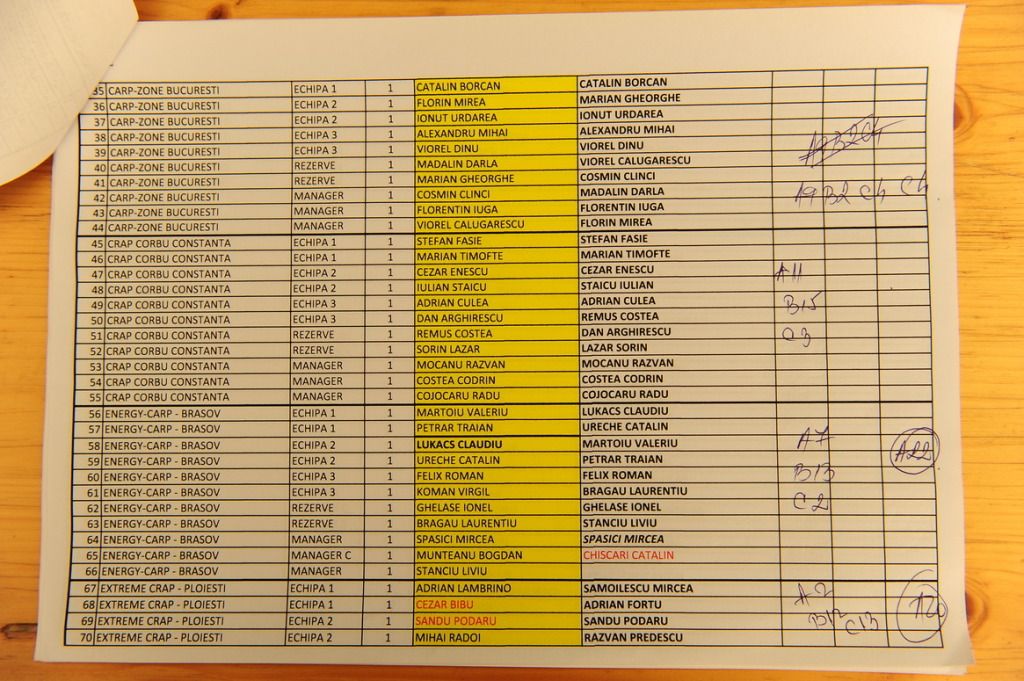 35 CARP-ZONE BUCURESTI ECHIPA 1 1 CATALIN BORCAN CATALIN BORCAN
36 CARP-ZONE BUCURESTI ECHIPA 2 1 FLORIN MIREA MARIAN GHEORGHE
37 CARP-ZONE BUCURESTI ECHIPA 2 1 IONUT URDAREA IONUT URDAREA
38 CARP-ZONE BUCURESTI ECHIPA 3 1 ALEXANDRU MIHAI ALEXANDRU MIHAI
39 CARP-ZONE BUCURESTI ECHIPA 3 1 VIOREL DINU VIOREL DINU
40 CARP-ZONE BUCURESTI REZERVE 1 MADALIN DARLA VIOREL CALUGARESCU
41 CARP-ZONE BUCURESTI REZERVE 1 MARIAN GHEORGHE COSMIN CLINCI
42 CARP-ZONE BUCURESTI MANAGER 1 COSMIN CLINCI MADALIN DARLA A9 B2 C4 C4
43 CARP-ZONE BUCURESTI MANAGER 1 FLORENTIN IUGA FLORENTIN IUGA
44 CARP-ZONE BUCURESTI MANAGER 1 VIOREL CALUGARESCU FLORIN MIREA
45 CRAP CORBU CONSTANTA ECHIPA 1 1 STEFAN FASIE STEFAN FASIE
46 CRAP CORBU CONSTANTA ECHIPA 1 1 MARIAN TIMOFTE MARIAN TIMOFTE
47 CRAP CORBU CONSTANTA ECHIPA 2 1 CEZAR ENESCU CEZAR ENESCU A11
48 CRAP CORBU CONSTANTA ECHIPA 2 1 IULIAN STAICU STAICU IULIAN
49 CRAP CORBU CONSTANTA ECHIPA 3 1 ADRIAN CULEA ADRIAN CULEA B15
50 CRAP CORBU CONSTANTA ECHIPA 3 1 DAN ARGHIRESCU REMUS COSTEA
51 CRAP CORBU CONSTANTA REZERVE 1 REMUS COSTEA DAN ARGHIRESCU C3
52 CRAP CORBU CONSTANTA REZERVE 1 SORIN LAZAR LAZAR SORIN
53 CRAP CORBU CONSTANTA MANAGER 1 MOCANU RAZVAN MOCANU RAZVAN
54 CRAP CORBU CONSTANTA MANAGER 1 COSTEA CODRIN COSTEA CODRIN
55 CRAP CORBU CONSTANTA MANAGER 1 COJOCARU RADU COJOCARU RADU
56 ENERGY-CARP - BRASOV ECHIPA 1 1 MARTOIU VALERIU LUKACS CLAUDIU
57 ENERGY-CARP - BRASOV ECHIPA 1 1 PETRAR TRAIAN URECHE CATALIN
58 ENERGY-CARP - BRASOV ECHIPA 2 1 LUKACS CLAUDIU MARTOIU VALERIU A7
59 ENERGY-CARP - BRASOV ECHIPA 2 1 URECHE CATALIN PETRAR TRAIAN A22
60 ENERGY-CARP - BRASOV ECHIPA 3 1 FELIX ROMAN FELIX ROMAN B13
61 ENERGY-CARP - BRASOV ECHIPA 3 1 KOMAN VIRGIL BRAGAU LAURENTIU
62 ENERGY-CARP - BRASOV REZERVE 1 GHELASE IONEL GHELASE IONEL C2
63 ENERGY-CARP - BRASOV REZERVE 1 BRAGAU LAURENTIU STANCIU LIVIU
64 ENERGY-CARP - BRASOV MANAGER 1 SPASICI MIRCEA SPASICI MIRCEA
65 ENERGY-CARP - BRASOV MANAGER C 1 MUNTEANU BOGDAN CHISCARI CATALIN
66 ENERGY-CARP - BRASOV MANAGER 1 STANCIU LIVIU
67 EXTREME CRAP - PLOIESTI ECHIPA 1 1 ADRIAN LAMBRINO SAMOILESCU MIRCEA A2
68 EXTREME CRAP - PLOIESTI ECHIPA 1 1 CEZAR BIBU ADRIAN FORTU
69 EXTREME CRAP - PLOIESTI ECHIPA 2 1 SANDU PODARU SANDU PODARU B12 C13
70 EXTREME CRAP - PLOIESTI ECHIPA 2 1 MIHAI RADOI RAZVAN PREDESCU